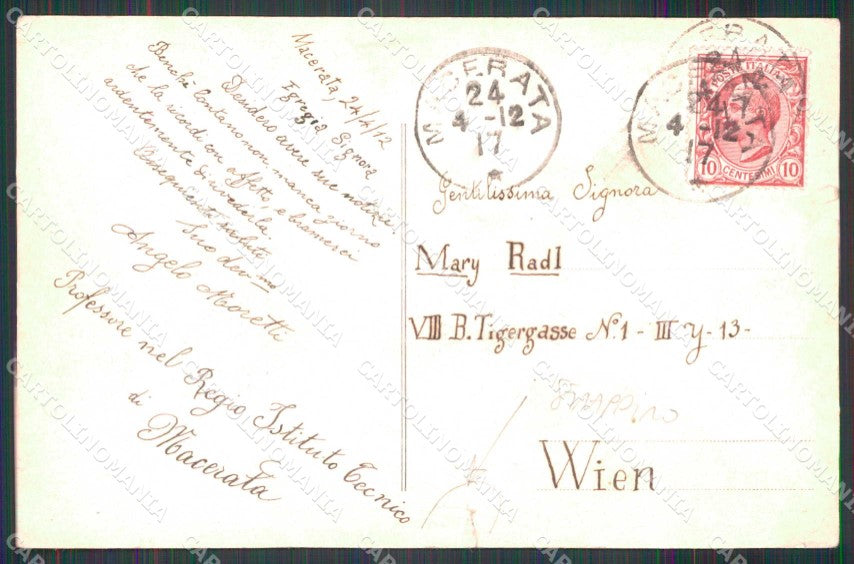 Macerata, 24/4/12
Egregia Signora
Desidero avere sue notizie
Benchè lontano non manca giorno
che la ricordi con affetto, e bramerei
ardentemente di rivederla
Ossequienti saluti
Suo dev.mo
Angelo Moretti
Professore nel Regio Istituto Tecnico
di
Macerata
MACERATA
24
4 -12
17
MACERATA
24
4 -12
17
POSTE ITALIANE
10 CENTESIMI 10
Gentilissima Signora
Mary Radl
VIII B. Tigergasse N.º 1 - III Y - 13 -
Wien
CARTOLINOMANIA